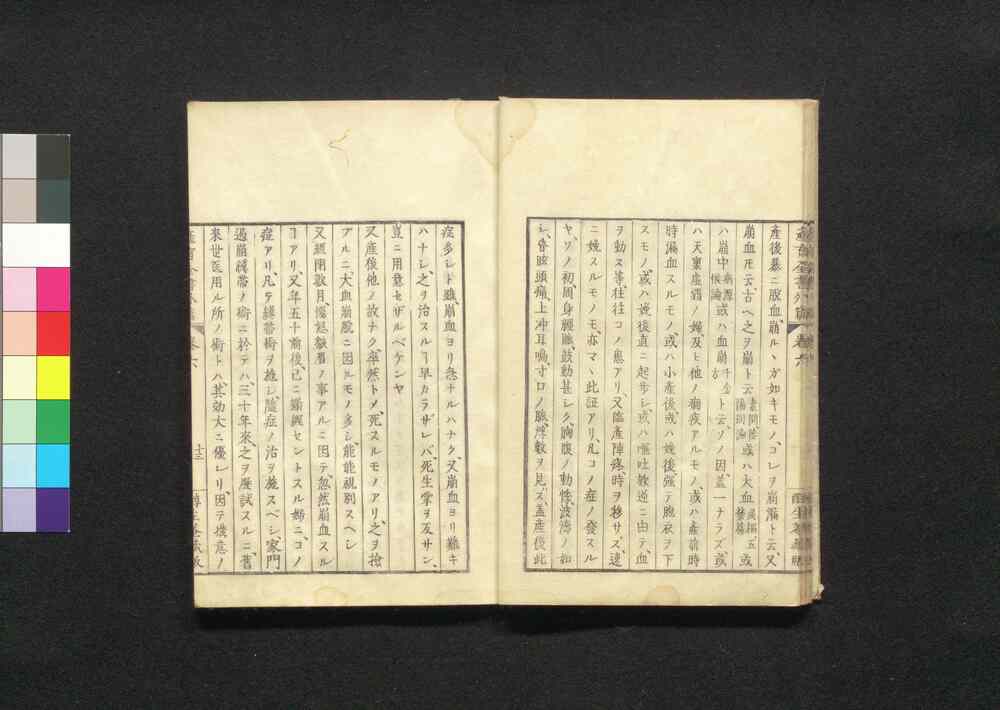 産後暴ニ脱血崩ルヽガ如キモノ、コレヲ崩漏ト云、又
崩血トモ云、古ヘ之ヲ崩ト云素問陰陽別論或ハ大血或
ハ崩中病源候論或ハ血崩千金方ト云、ソノ因、蓋一ナラズ、或
ハ天稟虚弱ノ婦、及ヒ他ノ痼疾アルモノ、或ハ産前時
時漏血スルモノ、或ハ小産後、或ハ娩後、強テ胞衣ヲ下
スモノ、或ハ娩後直ニ起歩シ、或ハ嘔吐咳逆ニ由テ、血
ヲ動ス等、往往コノ患アリ、又臨産陣疼、時ヲ移サズ、速
ニ娩スルモノモ、亦マヽ此証アリ、凡コノ症ノ發スル
ヤ、ソノ初、周身腫脹、鼓動甚シク、胸腹ノ動悸、波濤ノ如
シ、昏眩頭痛、上冲耳鳴、寸口ノ脈、浮數ヲ見ズ、蓋産後此
症多シト雖、崩血ヨリ急ナルハナク、又崩血ヨリ難キ
ハナシ、之ヲ治スルヿ早カラザレバ、死生掌ヲ反サン、
豈ニ用意セザルベケンヤ
又産後他ノ故ナク、卒然トメ、死スルモノアリ、之ヲ撿
フルニ、大血崩脱ニ因ルモノ多シ、能能視別スヘシ
又經閉數月、懐娠類着ノ事アルニ因テ、忽然崩血スル
ヿアリ、又年五十前後、已ニ斷經セントスル婦ニ、コノ
症アリ、凡テ繃帯術ヲ施シ、随症ノ治ヲ施スベシ、家門
過崩繃帯ノ術ニ於テハ、三十年來、之ヲ屡試スルニ、舊
來世医用ル所ノ術トハ、其効大ニ優レリ、因テ撲意ノ
卷六
十三